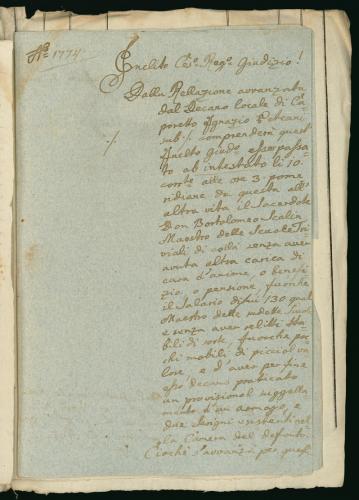 No. 1774
Inclito Ces.o Reg.o Giudizio!
Dalla Rellazione avvanzata
dal Decano locale di Ca-
poretto Ignazio
sub ·/. comprenderà quest'
Inclito Giud.o esser passa-
to ab intestato li 10
corr.te alle ore 3 pome-
ridiane da questa all'
altra vita il Sacerdote
Don Bartolomeo Scalin
Maestro delle Scuole Tri-
viali di colà senza aver
avuta altra carica di
cura d'anime, o benefi-
zio, o pensione, fuorche
il Salario di fni 130 qual
Maestro delle sudette Scuole
e senza aver relitti Sta-
bili di sorte, fuorche po-
chi mobili di piccol va-
lore, e d'aver per fine
esso Decano praticato
un provisional suggella-
mento d'un armajo, e
due scrigni esistenti nel-
la Camera del defonto.
Ciochè s'avvanza per quel-